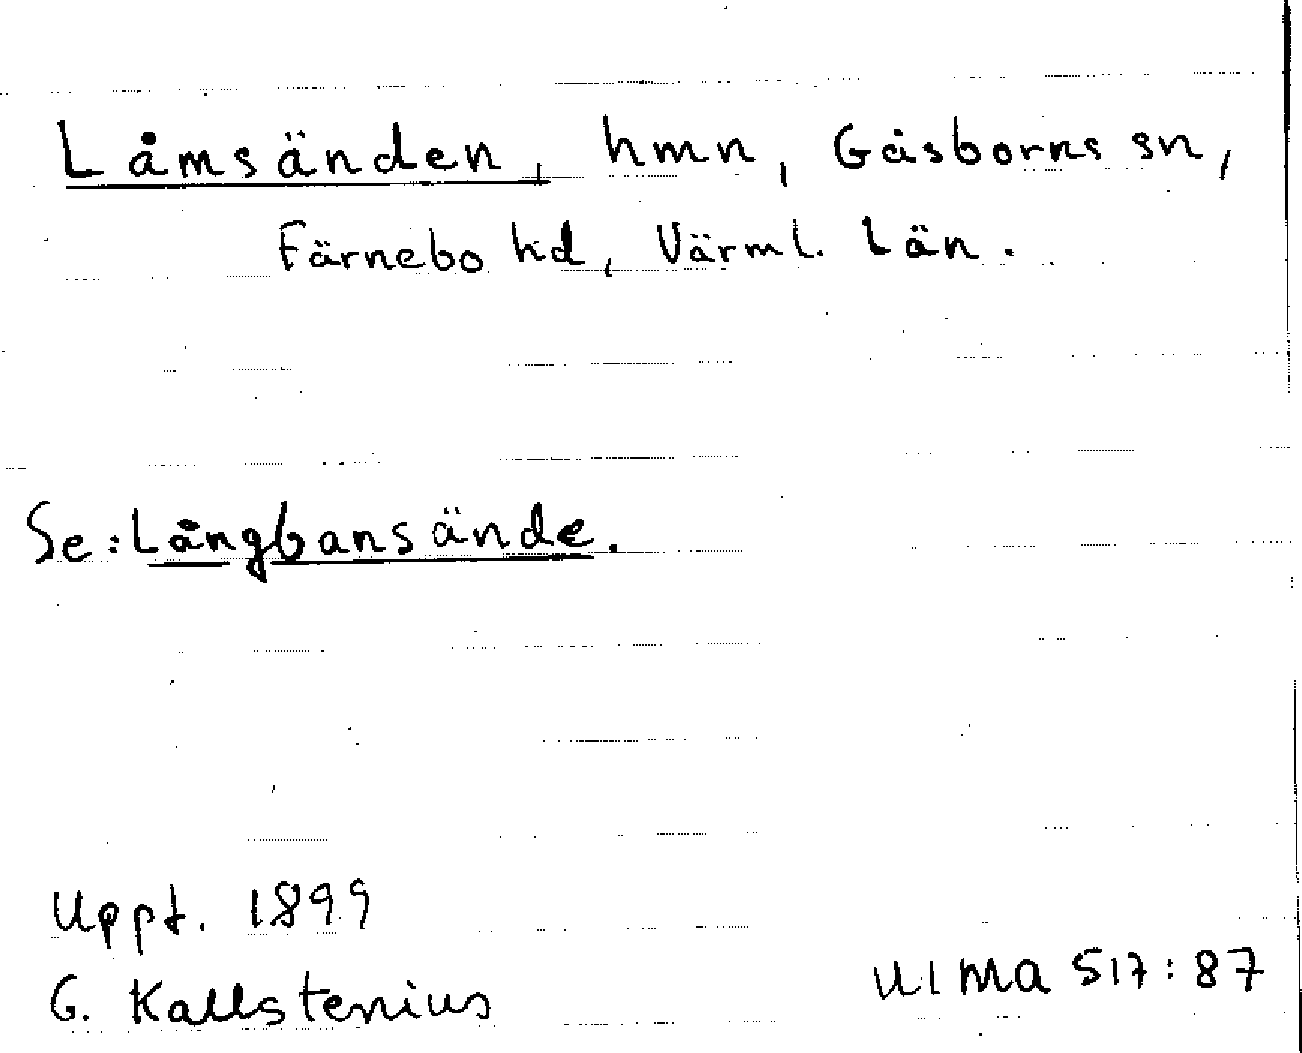 Låmsänden, hmn, Gåsborns sn,
Färnebo hd, Värml. län.
Se: Långbansände.
Uppt. 1899
G. Kallstenius
ULMA 517:87